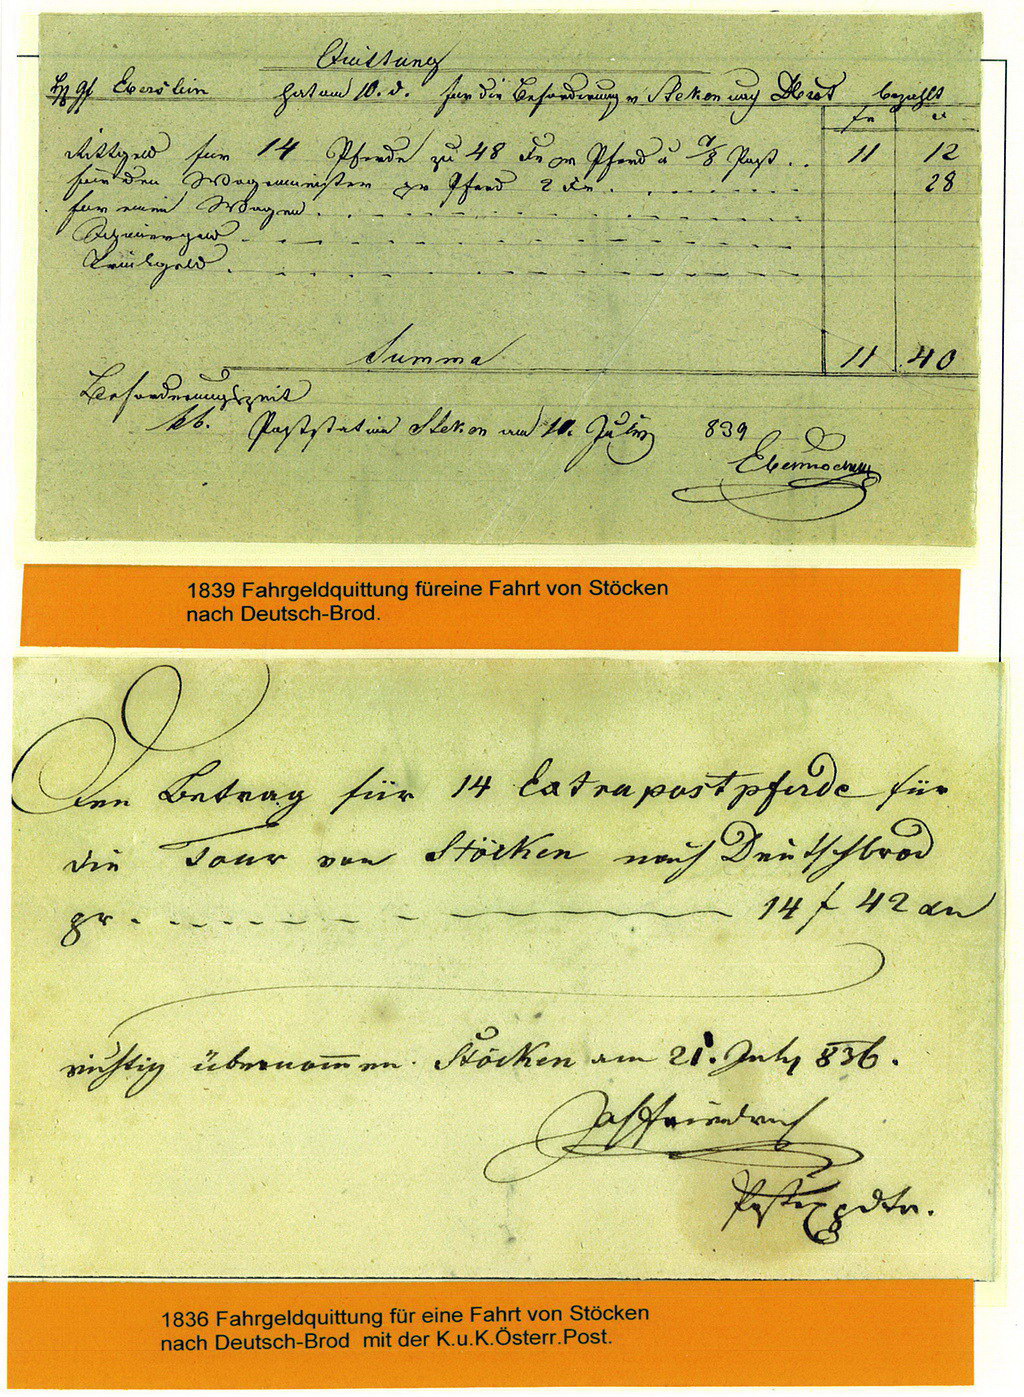 Quittung
Eberstein hat am 10. d. für die Beförderung v Steken nach DBrod bezahlt
fr x
Rittgeld für 14 Pferde zu 48 Xr pr Pferd u 7/8 Post . . 11 12
für den Wagenmeister pr Pferd 2 Xr . 28
für einen Wagen
Schmiergeld
Trinkgeld
Summa 11 40
Beförderungszeit
Poststation Steken am 10. July 839
1839 Fahrgeldquittung füreine Fahrt von Stöcken
nach Deutsch-Brod.
Den Betrag für 14 Extrapostpferde für
die Tour von Stöcken nach Deutschbrod
pr. 14 f 42
richtig übernommen. Stöcken am 21. July 836.
Friedrich
Postexpdtr.
1836 Fahrgeldquittung für eine Fahrt von Stöcken
nach Deutsch-Brod mit der K.u.K.Österr.Post.